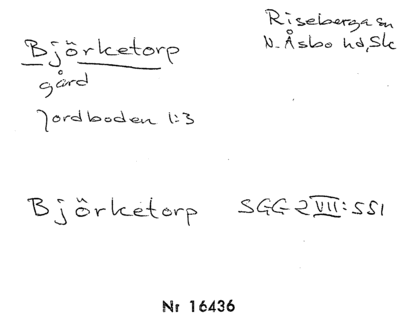 Björketorp
Riseberga sn
N. Åsbo hd, Sk
gård
Jordboden 1:3
Björketorp SGG 2 VII: 551
Nr 16436